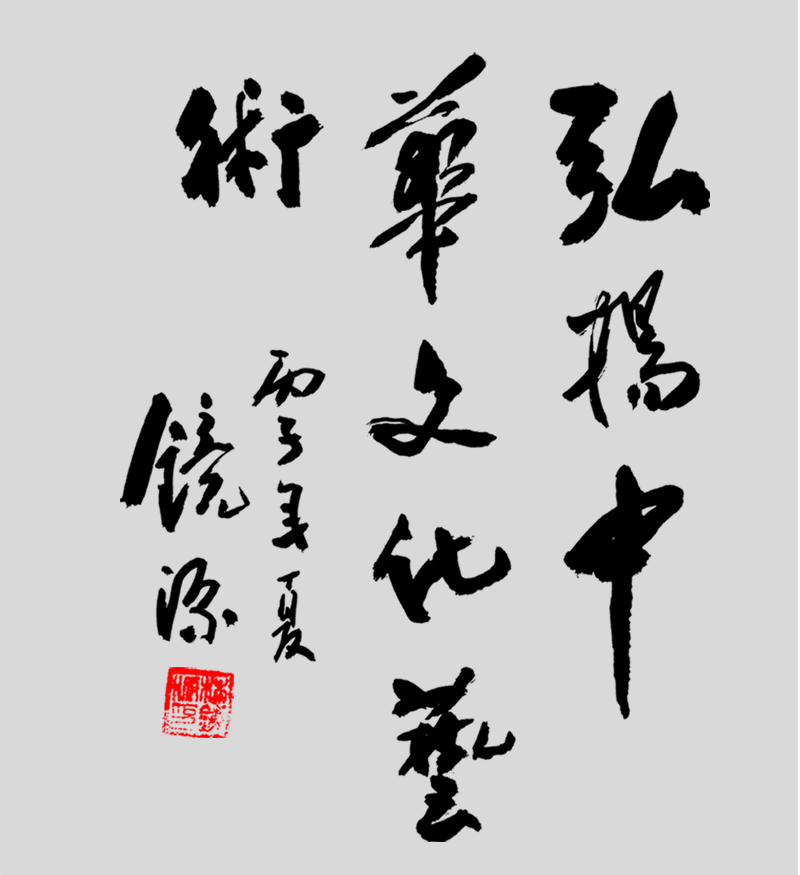 弘揚中
華文化藝
術
丙子年夏
鏡源